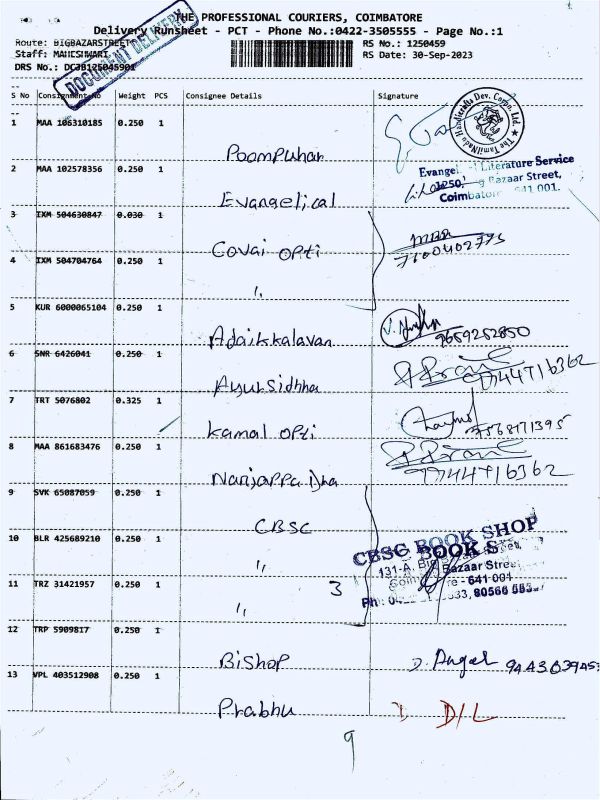 THE PROFESSIONAL COURIERS, COIMBATORE
Delivery Runsheet - PCT - Phone No.:0422-3505555 - Page No.:1
Route: BIGBAZARSTREET
RS No.: 1250459
Staff: MAHESHWARI
RS Date: 30-Sep-2023
DRS No.: DCJB125045901
DOCUMENT DELIVERY
S No Consignment No Weight PCS Consignee Details Signature
1 MAA 106310185 0.250 1
Poompuhar
The Tamilnadu Handicrafts Dev. Corpn. Ltd.
2 MAA 102578356 0.250 1
Evangelical
Literature Service
Bazaar Street,
641 001.
3 IXM 504630847 0.030 1
Covai opti
7100402775
4 IXM 504704764 0.250 1
"
5 KUR 6000065104 0.250 1
Adaikkalavan
9659252850
6 SNR 6426041 0.250 1
Ayursidhha
9744716362
7 TRT 5076802 0.325 1
Kamal opti
7568171395
8 MAA 861683476 0.250 1
Nanjappa Dha
9744716362
9 SVK 65087059 0.250 1
CBSC
10 BLR 425689210 0.250 1
"
CBSC BOOK SHOP
131-A, Big Bazaar Street,
641 001
80566
11 TRZ 31421957 0.250 1
" 3
12 TRP 5909817 0.250 1
Bishop
D. Angel 944363945
13 VPL 403512908 0.250 1
Prabhu
D/L
9